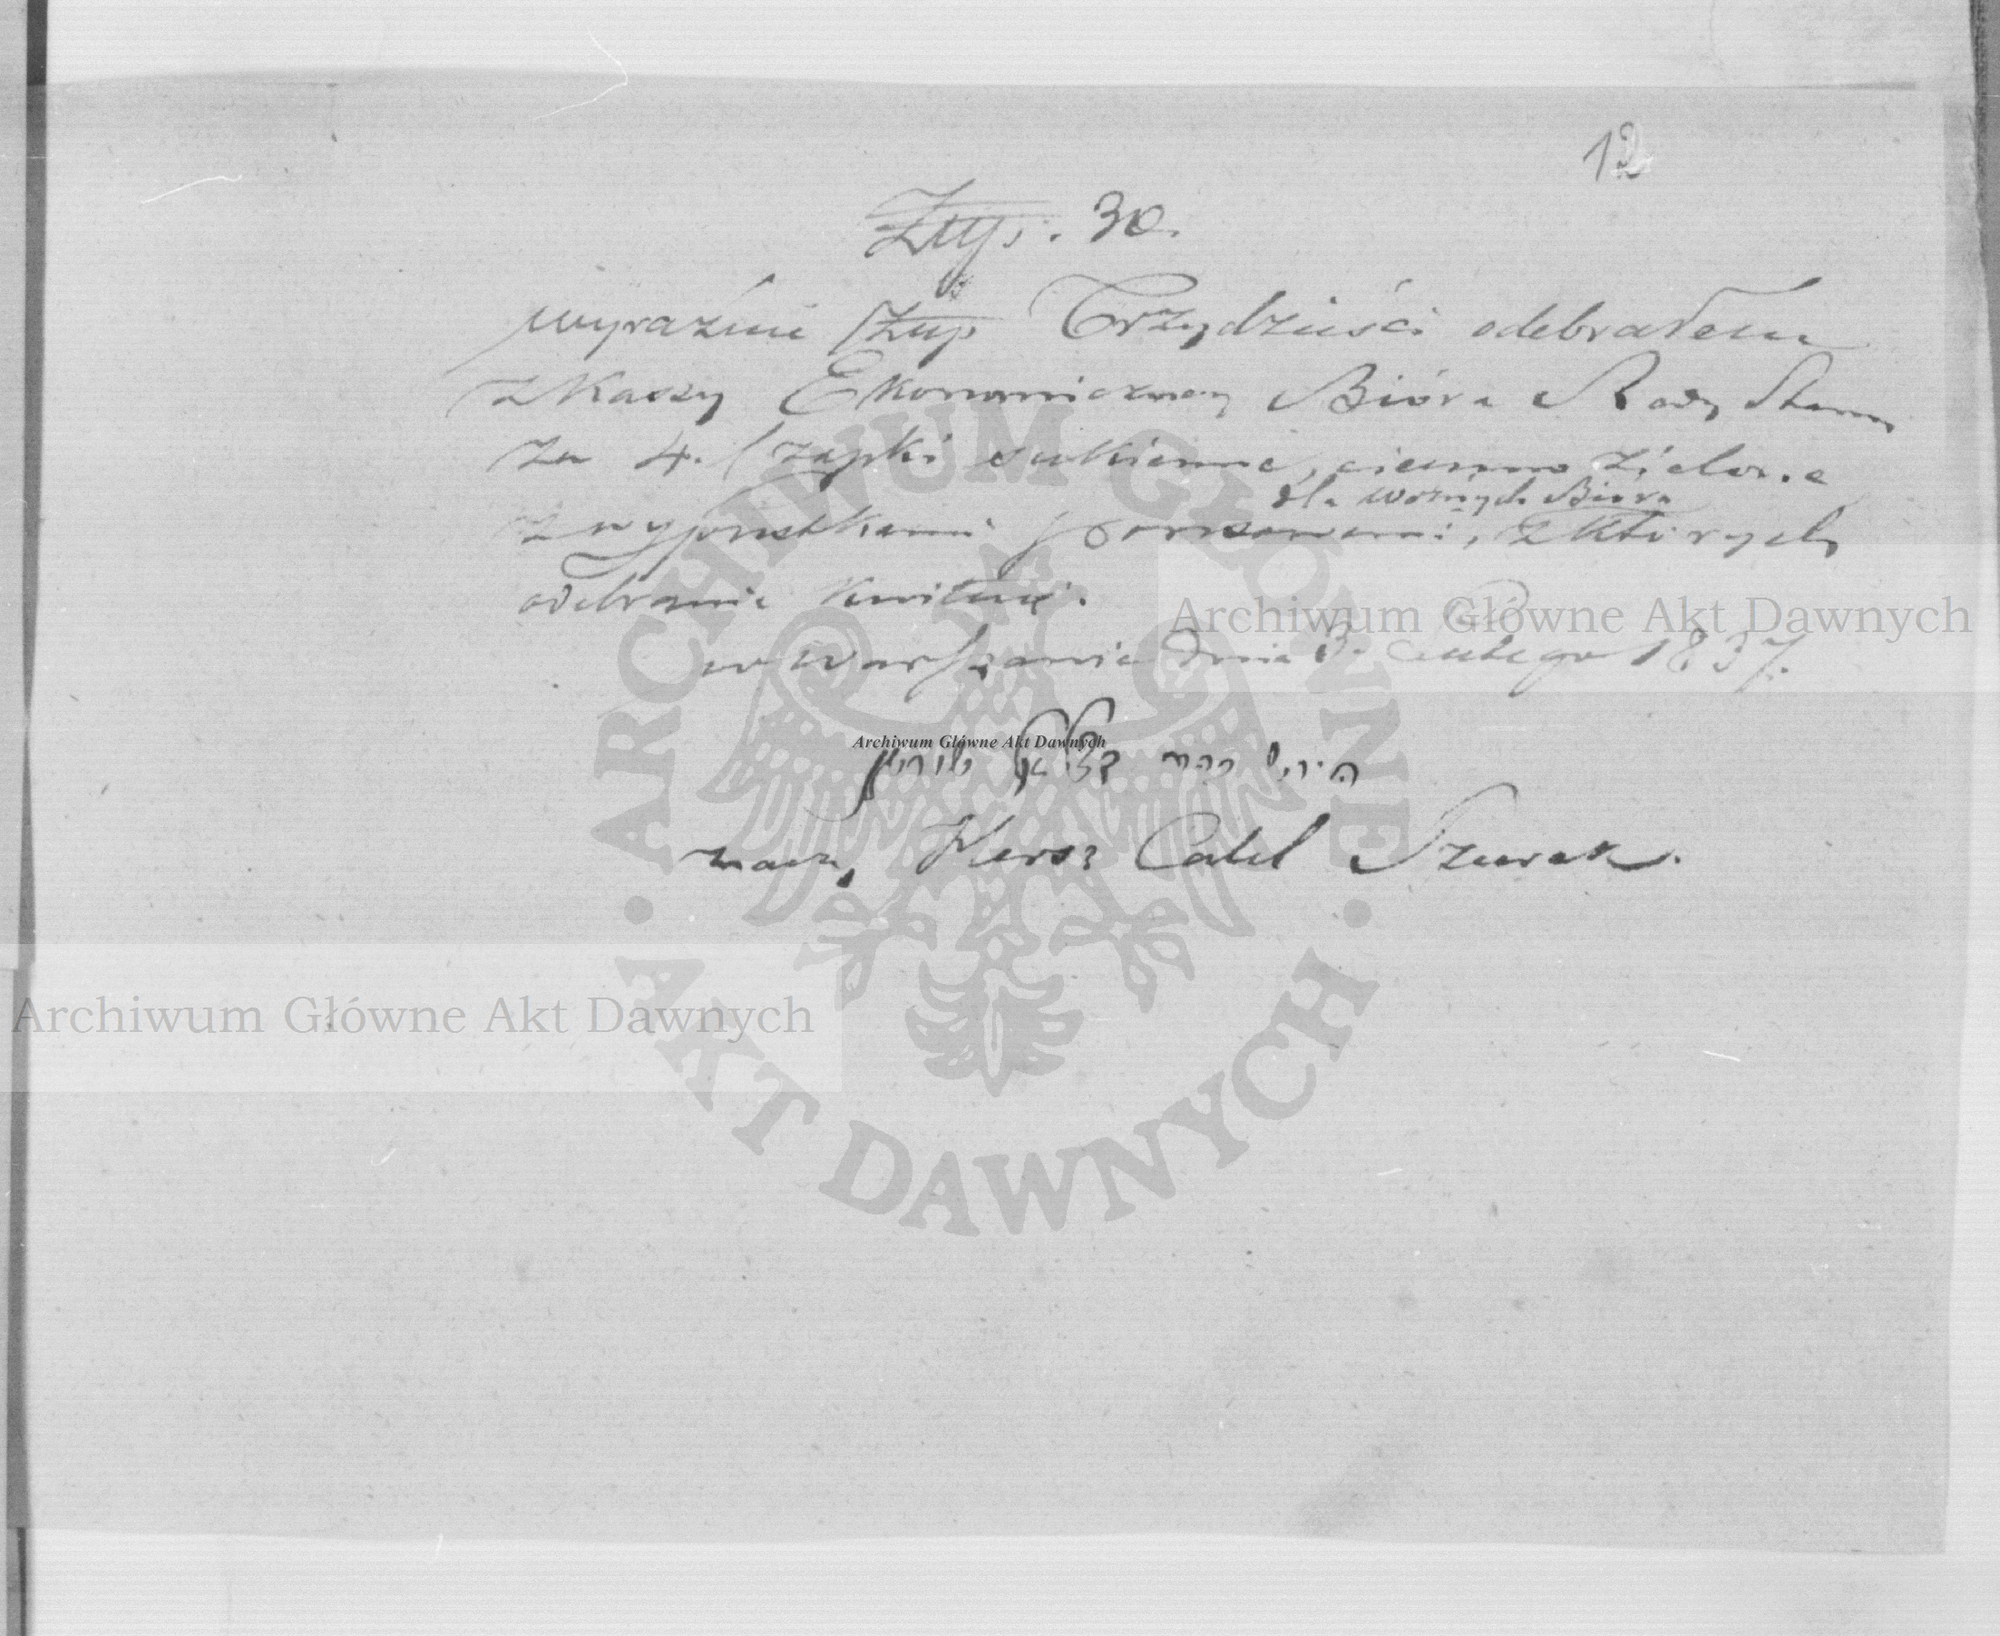 12
Złtp. 30.
wyraźnie Złtp Trzydzieści odebrałem
z Kassy Ekonomiczney Bióra Rady Stanu
za 4. Czapki sukienne, ciemno zielone
dla woźnych Bióra
z wypustkami ponsowemi, z których
odebranie kwituię.
w Warszawie dnia 3. Lutego 1837.
znaczy, Hersz Calel Szurek.
ARCHIWUM GŁÓWNE
AKT DAWNYCH
Archiwum Główne Akt Dawnych
Archiwum Główne Akt Dawnych
Archiwum Główne Akt Dawnych